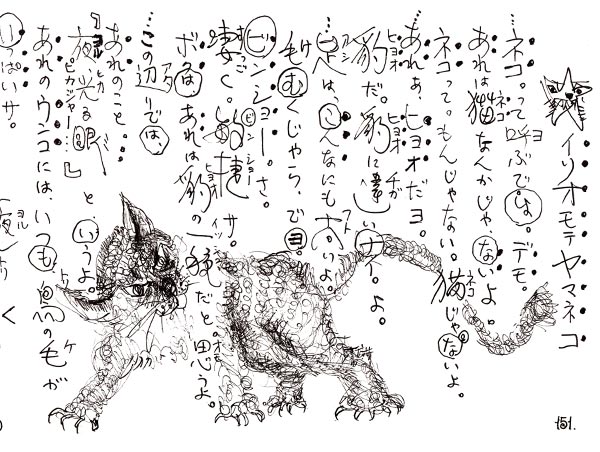 イリオモテヤマネコ
…ネコ。って呼ぶでしょ。デモ。
あれは猫なんかじゃ、ないよ。
ネコって。もんじゃない。猫じゃないよ。
あれぁ、ヒョオだヨ。
豹だ。豹に違いナイ。よ。
…足は、こんなにも太いよ。
毛むくじゃら、でヨ。
ビンショー。さ。
凄く。敏捷サ。
ボクは、あれは豹の一種だと。思うよ。
…この辺りでは、
あれのこと。
『夜光る眼 ピカジャー…』と、いうよ。
あれのウンコには、いつも、鳥の毛が
いっぱいサ。
151.